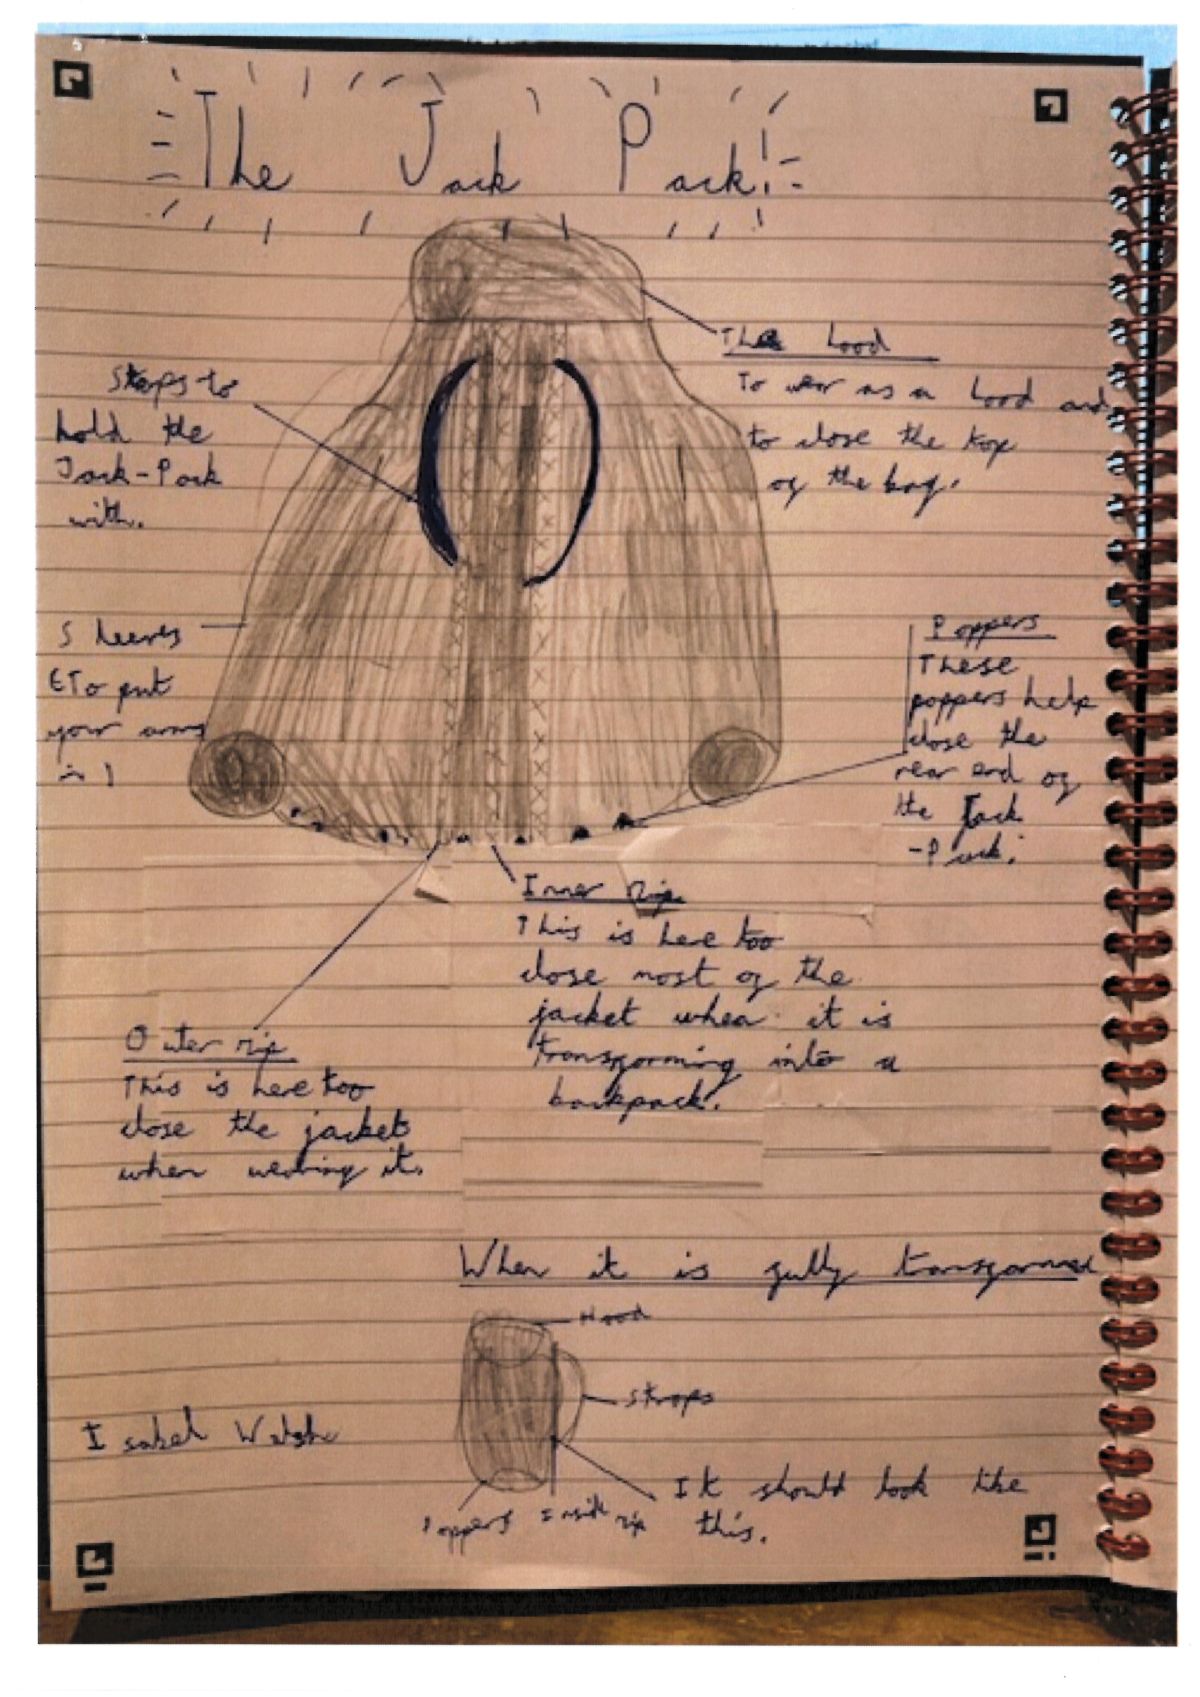 The Jack Pack!
The hood
To wear as a hood and
to close the top
of the bag.
Straps to
hold the
Jack-Pack
with.
Sleeves
(To put
your arms
in)
Poppers
These
poppers help
close the
rear end of
the Jack
-Pack.
Inner zip
This is here too
close most of the
jacket when it is
transforming into a
backpack.
Outer zip
This is here too
close the jacket
when wearing it.
When it is fully transformed
Hood
Straps
It should look like
this.
Poppers
Inside zip
Isabel Walsh